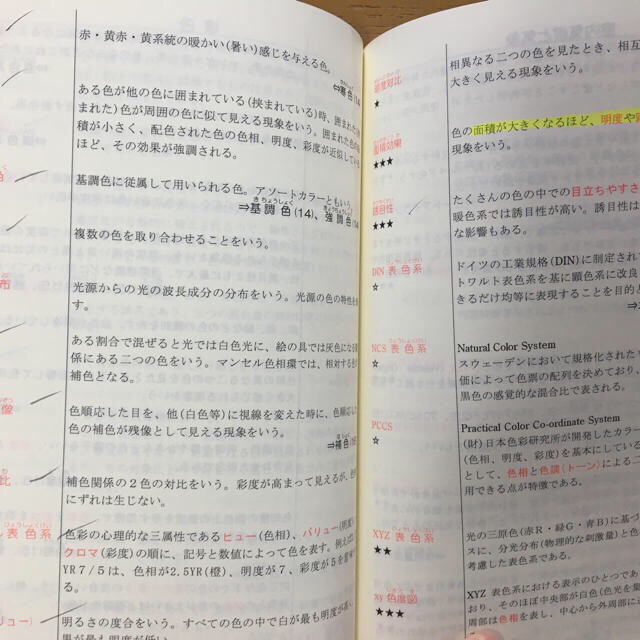 赤・黄赤・黄系統の暖かい(暑い)感じを与える色。
⇒寒色(14
ある色が他の色に囲まれている(挟まれている)時、囲まれた(
まれた)色が周囲の色に似て見える現象をいう。囲まれた色の
積が小さく、配色された色の色相、明度、彩度が近似してい
ほど、その効果が強調される。
基調色に従属して用いられる色。アソートカラーともいう。
⇒基調色(14)、強調色(14
複数の色を取り合わせることをいう。
布
光源からの光の波長成分の分布をいう。光源の色の特性を
す。
ある割合で混ぜると光では白色光に、絵の具では灰色になる
係にある二つの色をいう。マンセル色相環では、相対する
補色となる。
像
色順応した目を、他(白色等)に視線を変えた時に、色順応し
色の補色が残像として見える現象をいう。
⇒補色
比
補色関係の2色の対比をいう。彩度が高まって見えるが、色
にずれは生じない。
表色系
色彩の心理的な三属性であるヒュー(色相)、バリュー(明度)
クロマ(彩度)の順に、記号と数値によって色を表す。例えば
YR7/5は、色相が2.5YR(橙)、明度が7、彩度が5を
リュー)
明るさの度合をいう。すべての色の中で白が最も明度が高
黒が最も明度が低い
対比
★
相異なる二つの色を見たとき、相互
大きく見える現象をいう。
面積効果
★★★
色の面積が大きくなるほど、明度や
現象をいう。
誘目性
★★★
たくさんの色の中での目立ちやすさ
暖色系では誘目性が高い。誘目性は
な影響もある。
DIN 表色系
☆
ドイツの工業規格(DIN)に制定され
トワルト表色系を基に顕色系に改良
きるだけ均等に表現することを目的と
NCS 表色系
☆
Natural Color System
スウェーデンにおいて規格化された
価によって色票の配列を決めており、
黒色の感覚的な混合比で表される。
PCCS
☆
Practical Color Co-ordinate System
(財)日本色彩研究所が開発したカラー
(色相、明度、彩度)を基本にしている
として、色相と色調(トーン)による二
用できる点が特徴である。
XYZ 表色系
★★
光の三原色(赤R・緑G・青B)に基づ
スに、分光分布(物理的な刺激量)と色
考慮した表色系である。
xy 色度図
★★★
XYZ 表色系における表示のひとつであ
おり、そのほぼ中央部が白色(色光を集
周部は色相を表し、中心から外周部に